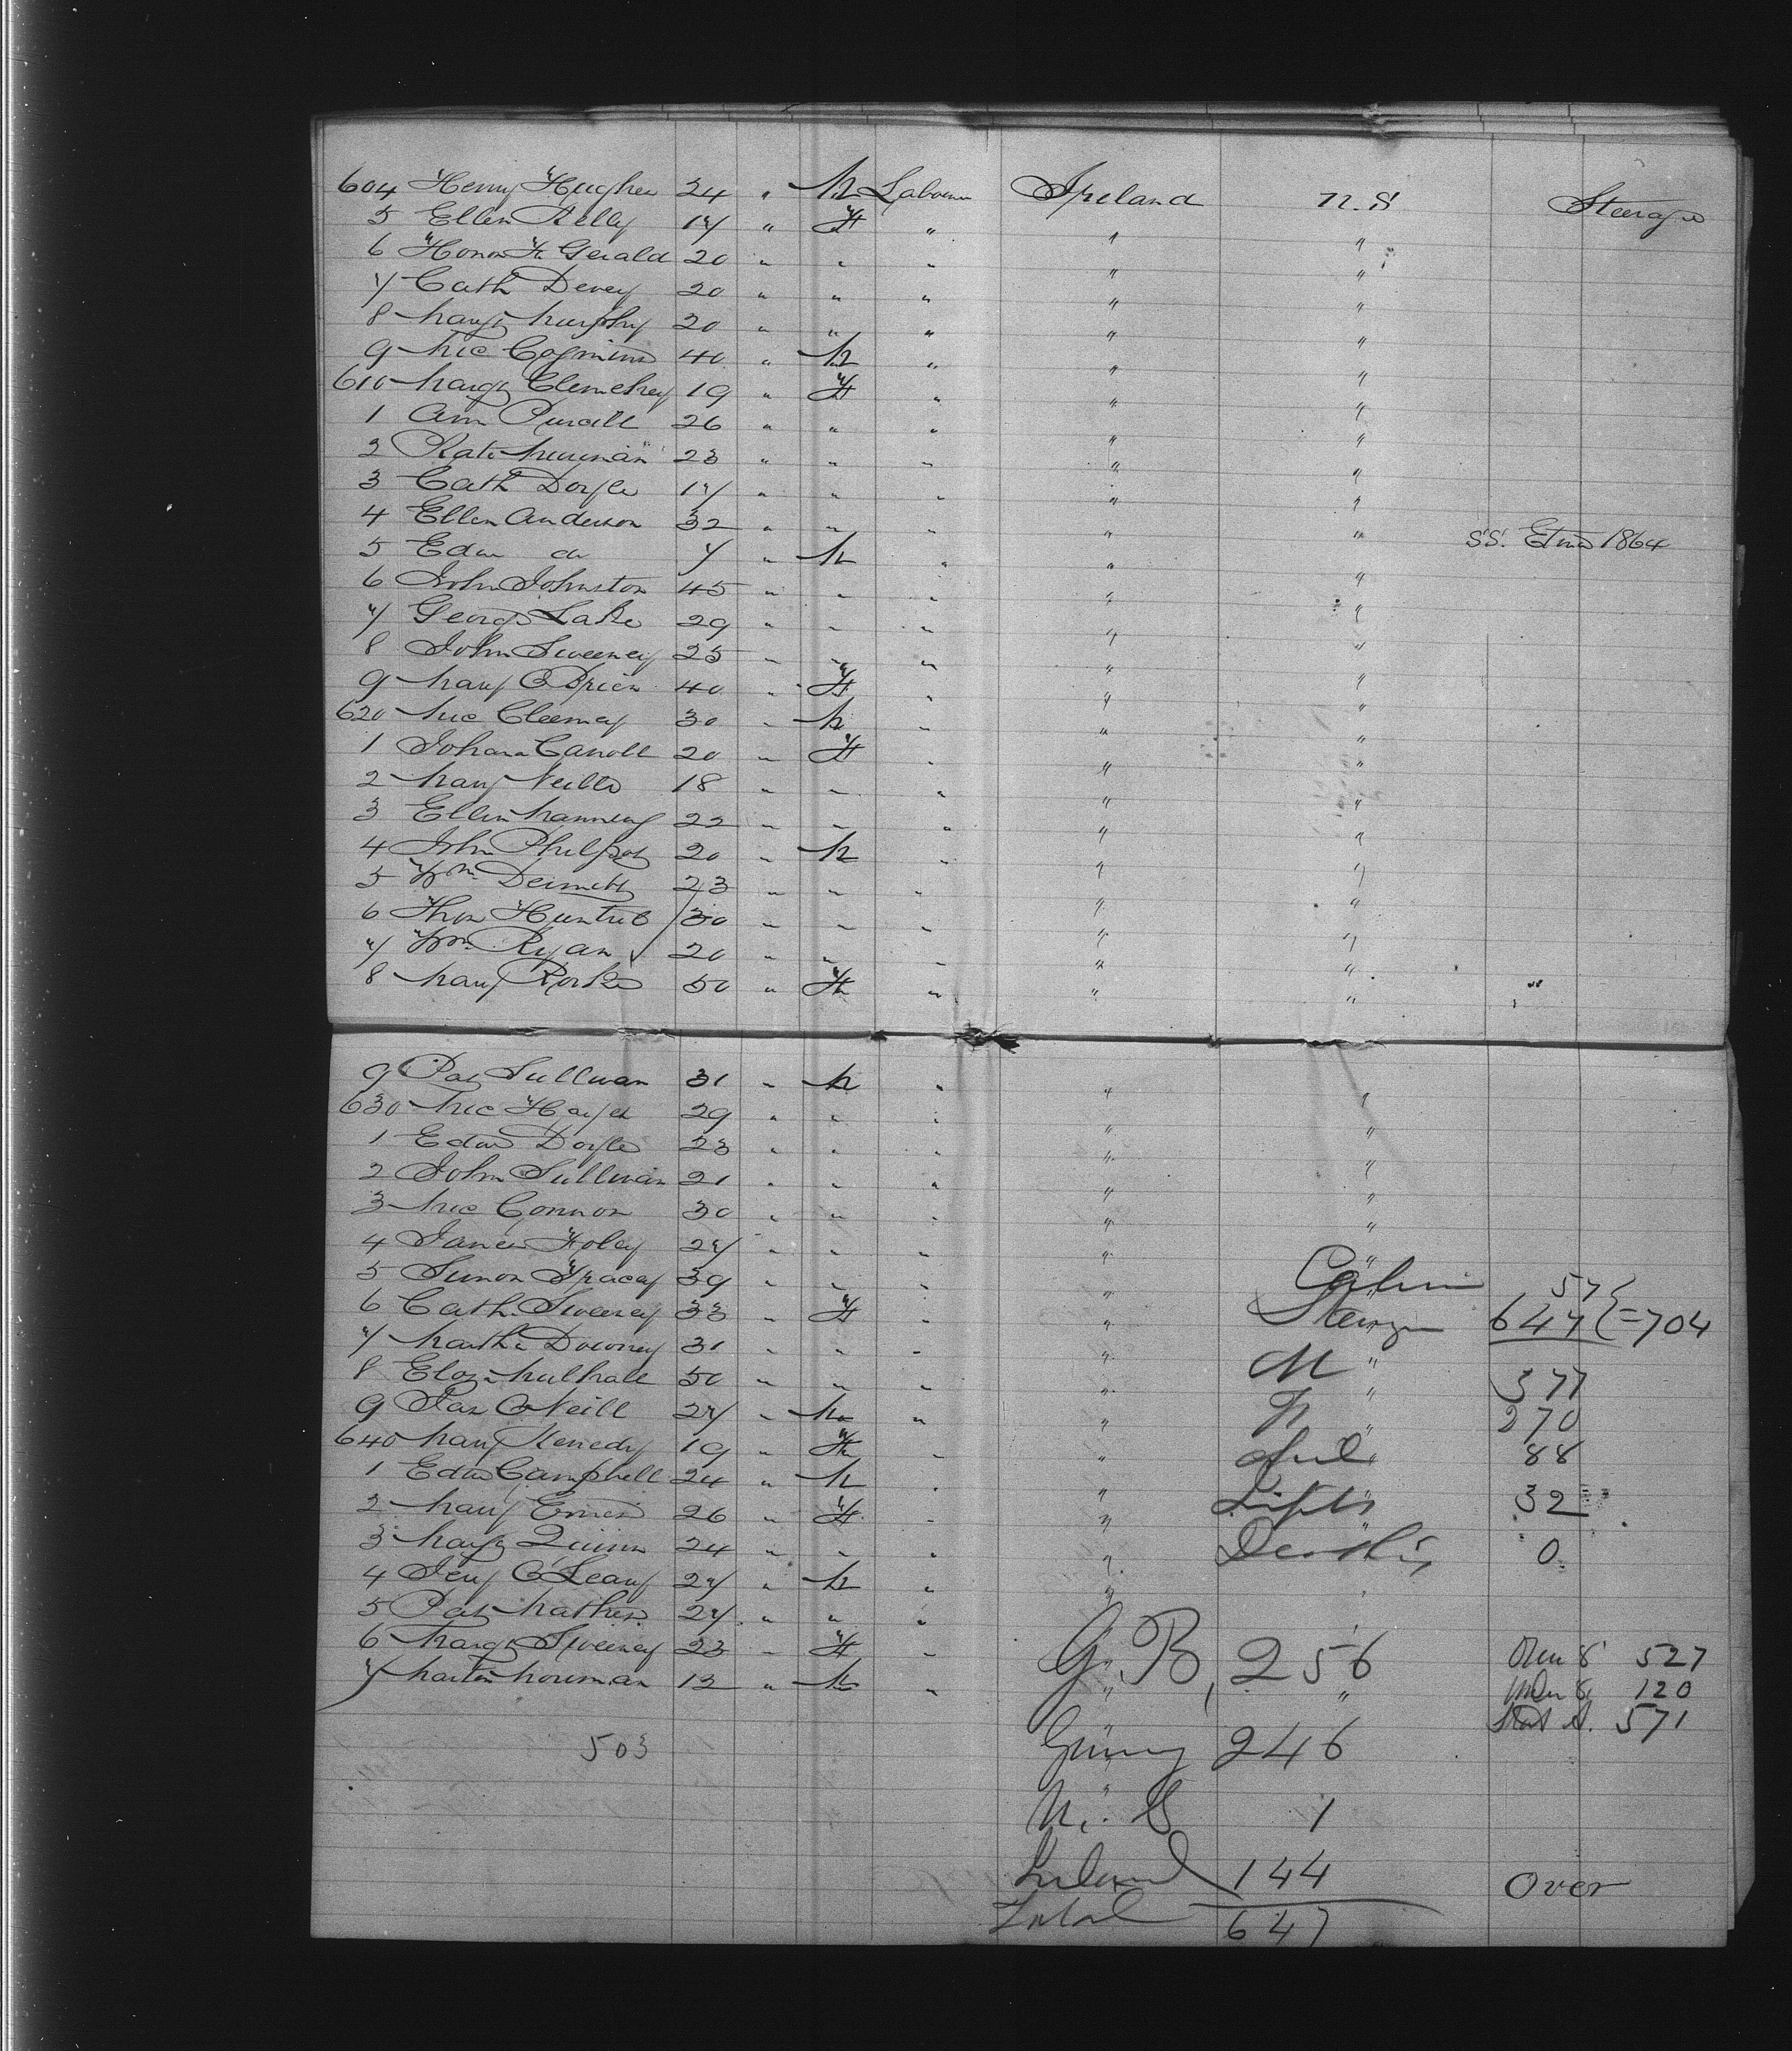 604 Henry Hughes 24 " M Labourer Ireland U.S Steerage
5 Ellen Kelly 17 " F " " "
6 Honor Fz Gerald 20 " " " " "
7 Cath Devey 20 " " " " "
8 Margt Murphy 20 " " " " "
9 Mic Cogmins 40 " M " " "
610 Margt Clemchey 19 " F " " "
1 Ann Purcill 26 " " " " "
2 Kate 23 " " " " "
3 Cath Doyle 17 " " " " "
4 Ellen Anderson 32 " " " " " S.S. Etna 1864
5 Edw do 7 " M " " "
6 John Johnston 45 " " " " "
7 George Lake 29 " " " " "
8 John Sweeney 25 " " " " "
9 Mary O'Brien 40 " F " " "
620 Mic Cleemay 30 " M " " "
1 Johana Carroll 20 " F " " "
2 Mary Neille 18 " " " " "
3 Ellen Manning 22 " " " " "
4 John Philpot 20 " M " " "
5 Wm 23 " " " " "
6 Thos 30 " " " " "
7 Wm Ryan 20 " " " " "
8 Mary Rorke 50 " F " " "
9 Pat Sullivan 31 " M " " "
630 Mic Hayes 29 " " " " "
1 Edw Doyle 23 " " " " "
2 John Sullivan 21 " " " " "
3 Mic Connor 30 " " " " "
4 James Foley 27 " " " " "
5 Simon Tracey 39 " " " " Cabin 57
6 Cath Sweeney 33 " F " " Steerage 647 = 704
7 Martha Downey 31 " " " " "
8 Eliza Mulhall 50 " " " " M " 377
9 Jas O'Neill 27 " M " " F " 270
640 Mary Kenedy 19 " F " " Chil " 88
1 Edw Campbell 24 " M " " Infts " 32
2 Mary 26 " F " "
3 Margt Quinn 24 " " " " Deaths 0
4 Jery O'Leary 27 " M " " "
5 Pat Mathews 27 " " "
6 Margt Sweeney 23 " F " G.B, 256 Over 8 527
7 Martin 13 " M " " " Under 8 120
Stat A. 571
503 Germy 246
U.S 1
Ireland 144 Over
Total 647